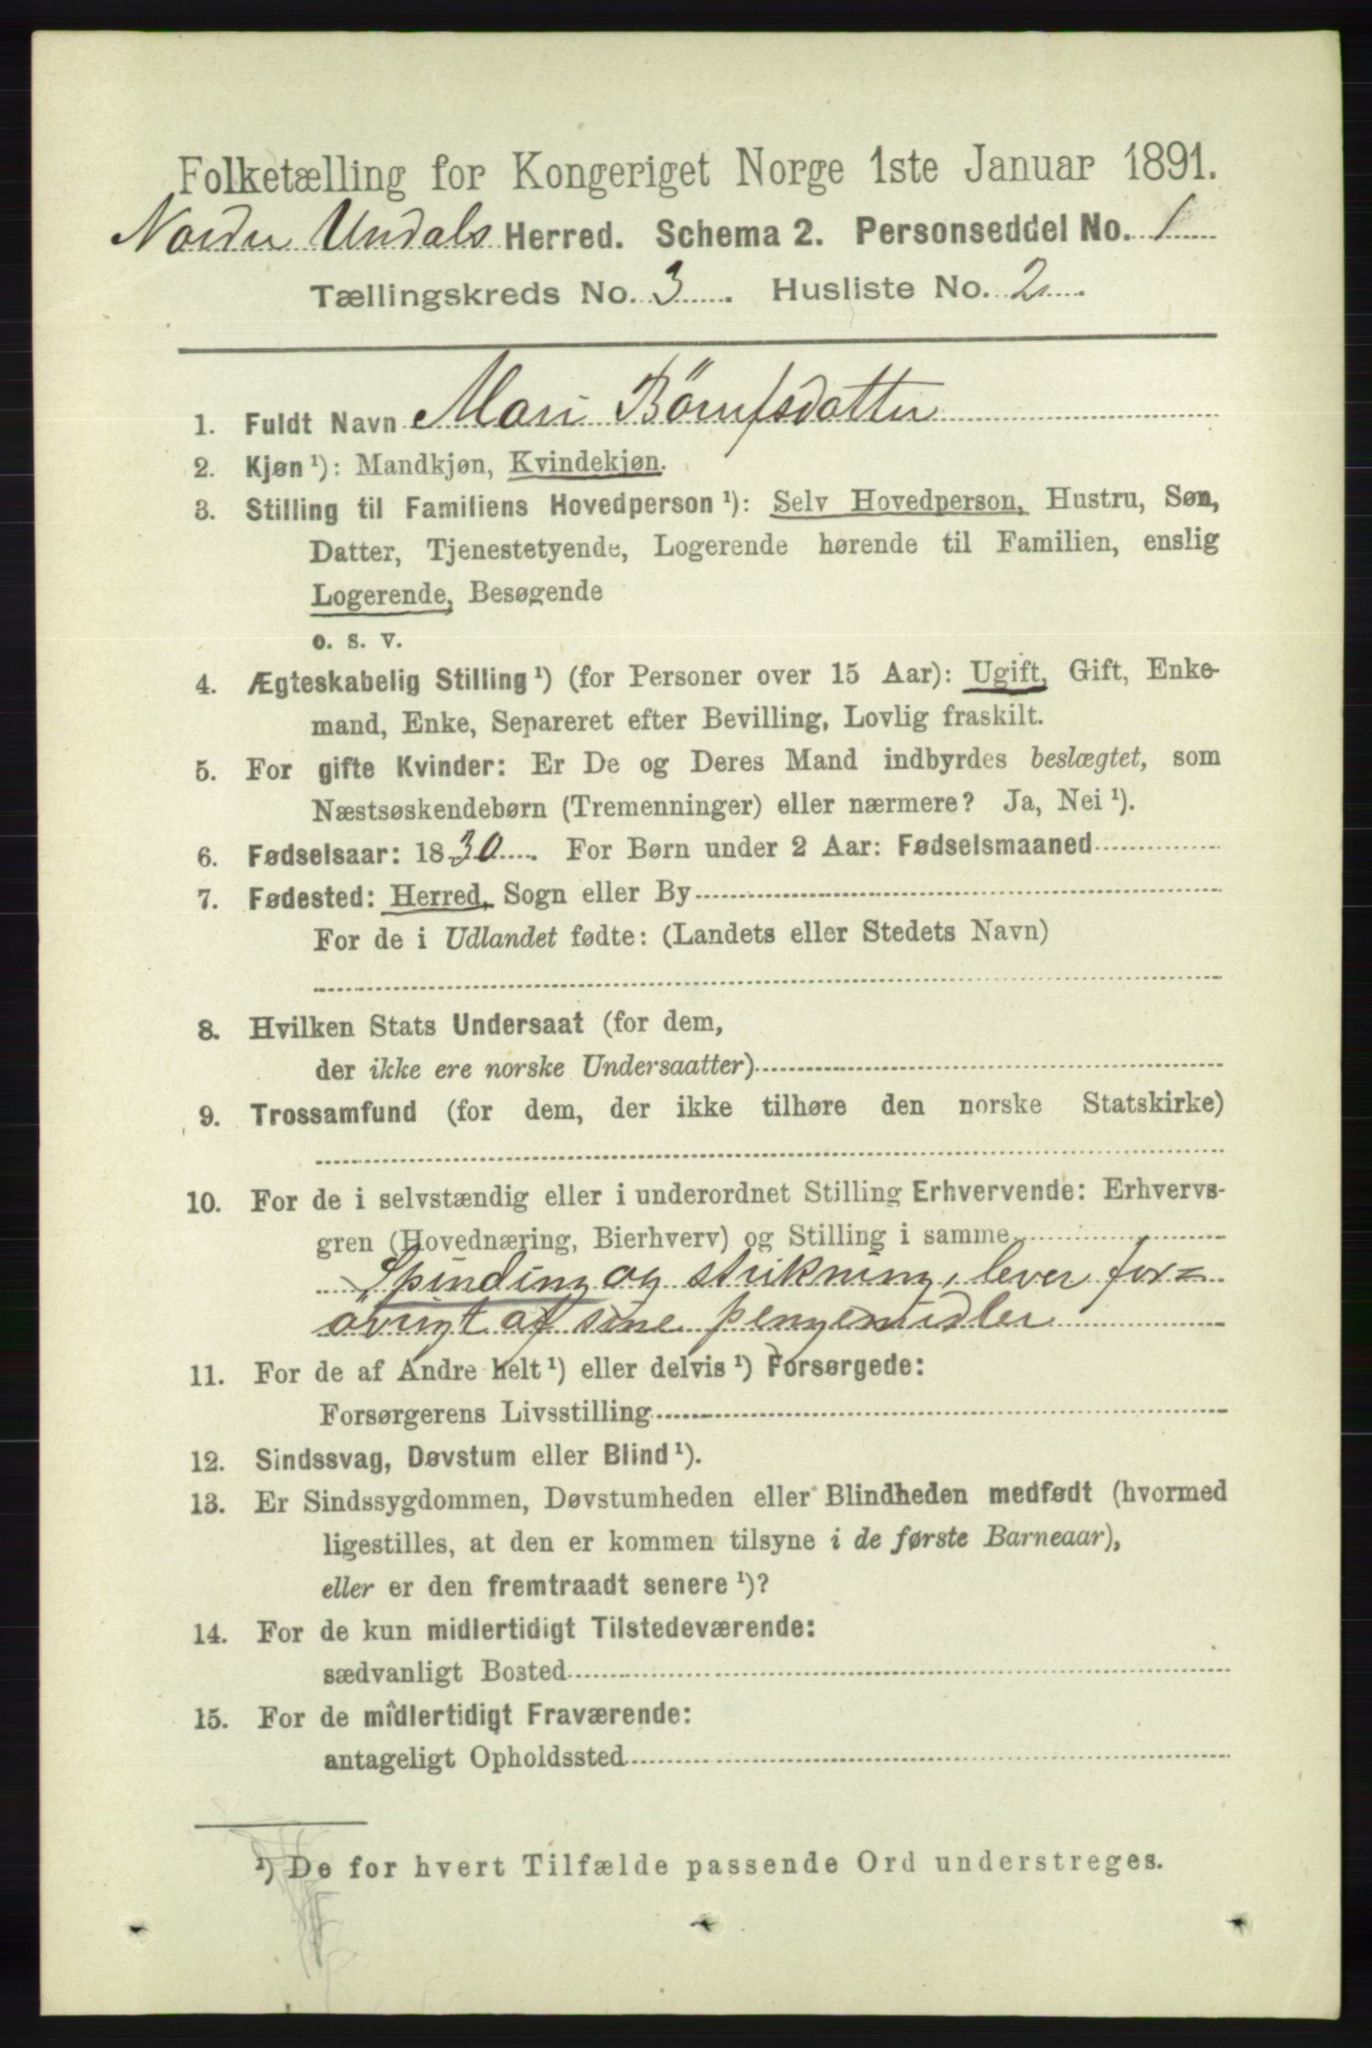 Folketælling for Kongeriget Norge 1ste Januar 1891.
Nordre Undals Herred. Schema 2. Personseddel No. 1
Tællingskreds No. 3. Husliste No. 2
1. Fuldt Navn Mari Börufsdatter
2. Kjøn¹): Mandkjøn, Kvindekjøn.
3. Stilling til Familiens Hovedperson¹): Selv Hovedperson, Hustru, Søn,
Datter, Tjenestetyende, Logerende hørende til Familien, enslig
Logerende, Besøgende
o. s. v.
4. Ægteskabelig Stilling¹) (for Personer over 15 Aar): Ugift, Gift, Enke-
mand, Enke, Separeret efter Bevilling, Lovlig fraskilt.
5. For gifte Kvinder: Er De og Deres Mand indbyrdes beslægtet, som
Næstsøskendebørn (Tremenninger) eller nærmere? Ja, Nei¹).
6. Fødselsaar: 1830. For Børn under 2 Aar: Fødselsmaaned
7. Fødested: Herred, Sogn eller By
For de i Udlandet fødte: (Landets eller Stedets Navn)
8. Hvilken Stats Undersaat (for dem,
der ikke ere norske Undersaatter)
9. Trossamfund (for dem, der ikke tilhøre den norske Statskirke)
10. For de i selvstændig eller i underordnet Stilling Erhvervende: Erhvervs-
gren (Hovednæring, Bierhverv) og Stilling i samme
Spinding og strikning, lever for=
øvrigt af sine pengemidler
11. For de af Andre helt¹) eller delvis¹) Forsørgede:
Forsørgerens Livsstilling
12. Sindssvag, Døvstum eller Blind¹).
13. Er Sindssygdommen, Døvstumheden eller Blindheden medfødt (hvormed
ligestilles, at den er kommen tilsyne i de første Barneaar),
eller er den fremtraadt senere¹)?
14. For de kun midlertidigt Tilstedeværende:
sædvanligt Bosted
15. For de midlertidigt Fraværende:
antageligt Opholdssted
¹) De for hvert Tilfælde passende Ord understreges.